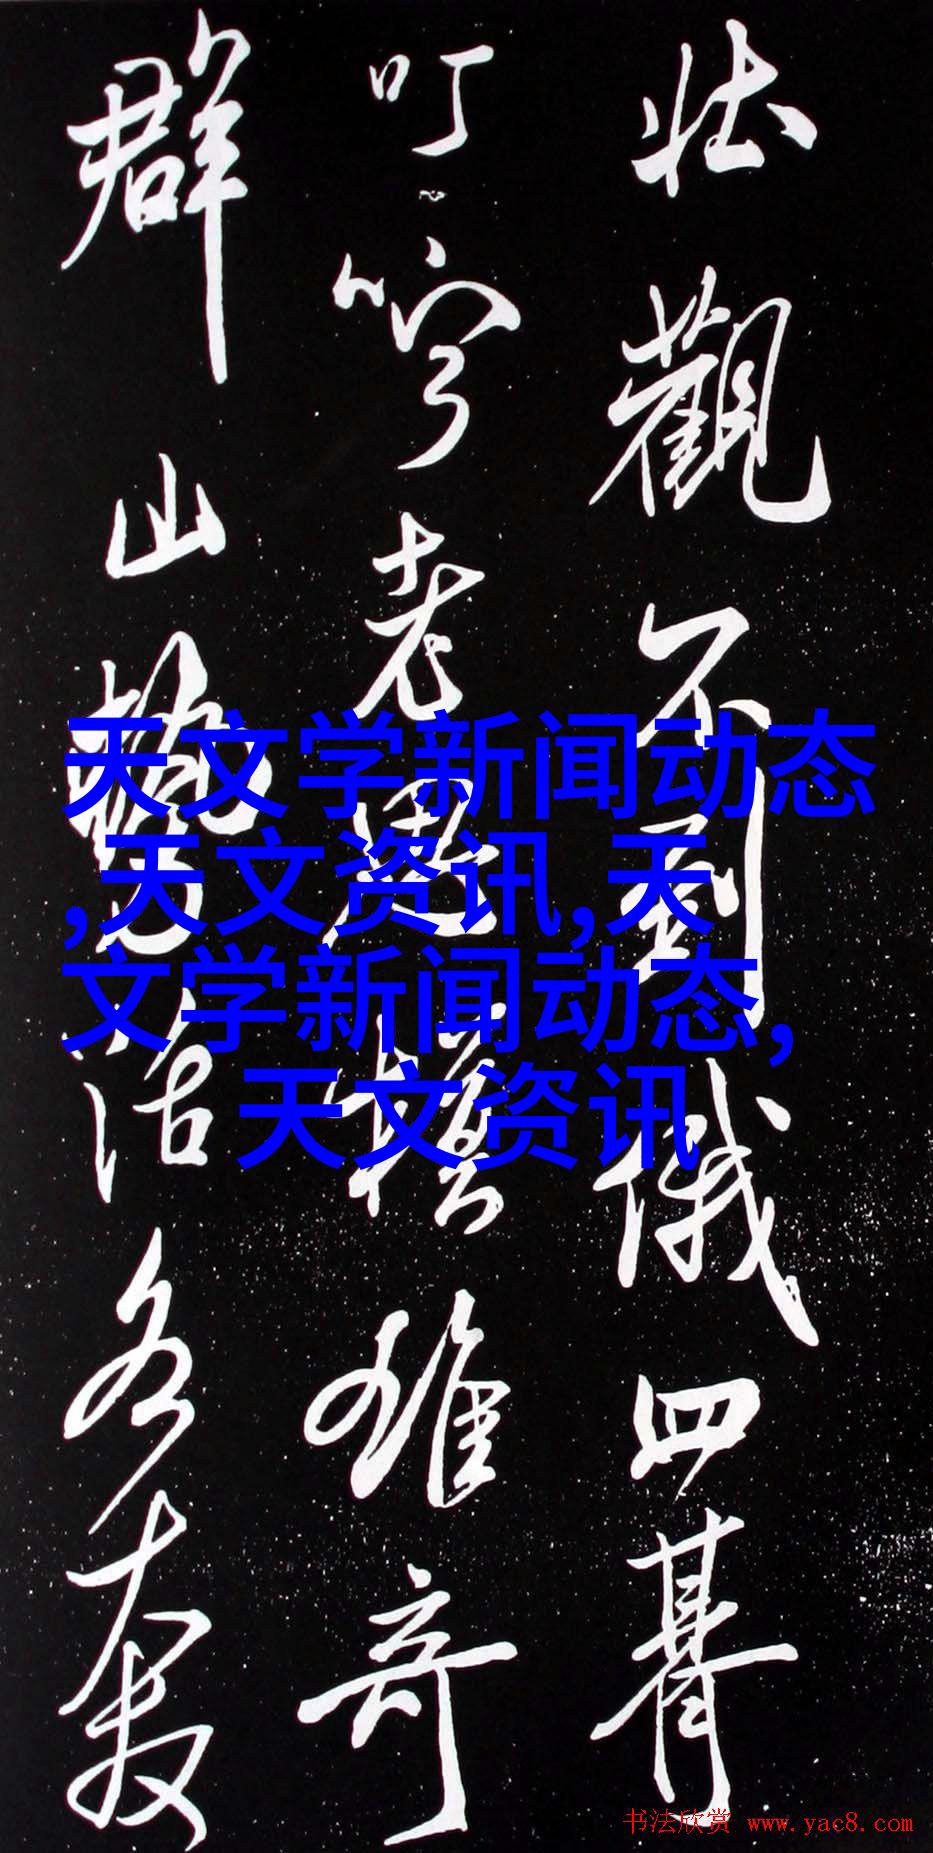 壯觀不到俄四朞
叮嚀老雄奇
群山勢活各
天文学新闻动态
,天文资讯,天
文学新闻动态,
天文资讯
书法欣赏 www.yac8.com